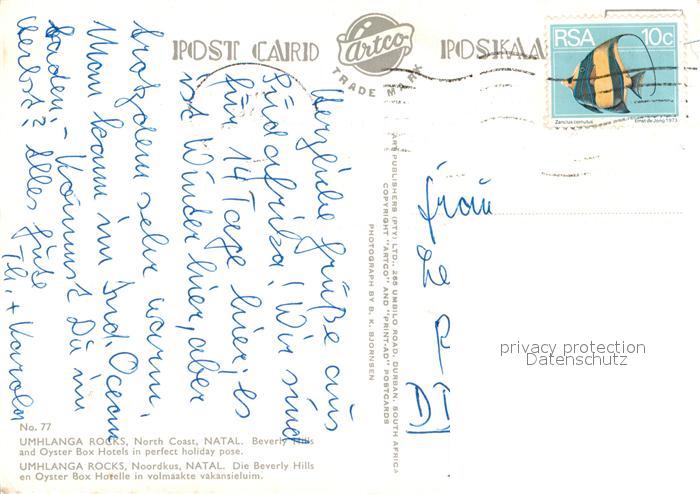 POST CARD
Artco
TRADE MARK
POSKAA
RSA 10c
Zanclus cornutus
Ernst de Jong 1973
Herzliche Grüße aus
Südafrika! Wir sind
für 14 Tage hier, es
ist Winter hier, aber
trotzdem sehr warm.
Man kann im Ind. Ocean
baden. –
Kommst Du im
Herbst? Alles Gute
ART PUBLISHERS (PTY) LTD., 265 UMBILO ROAD, DURBAN, SOUTH AFRICA
COPYRIGHT "ARTCO" AND "PRINT-AD" POSTCARDS
PHOTOGRAPH BY B. K. BJORNSEN
Frau
DI
privacy protection
Datenschutz
No. 77
UMHLANGA ROCKS, North Coast, NATAL. Beverly Hills
and Oyster Box Hotels in perfect holiday pose.
UMHLANGA ROCKS, Noordkus, NATAL. Die Beverly Hills
en Oyster Box Hotelle in volmaakte vakansieluim.